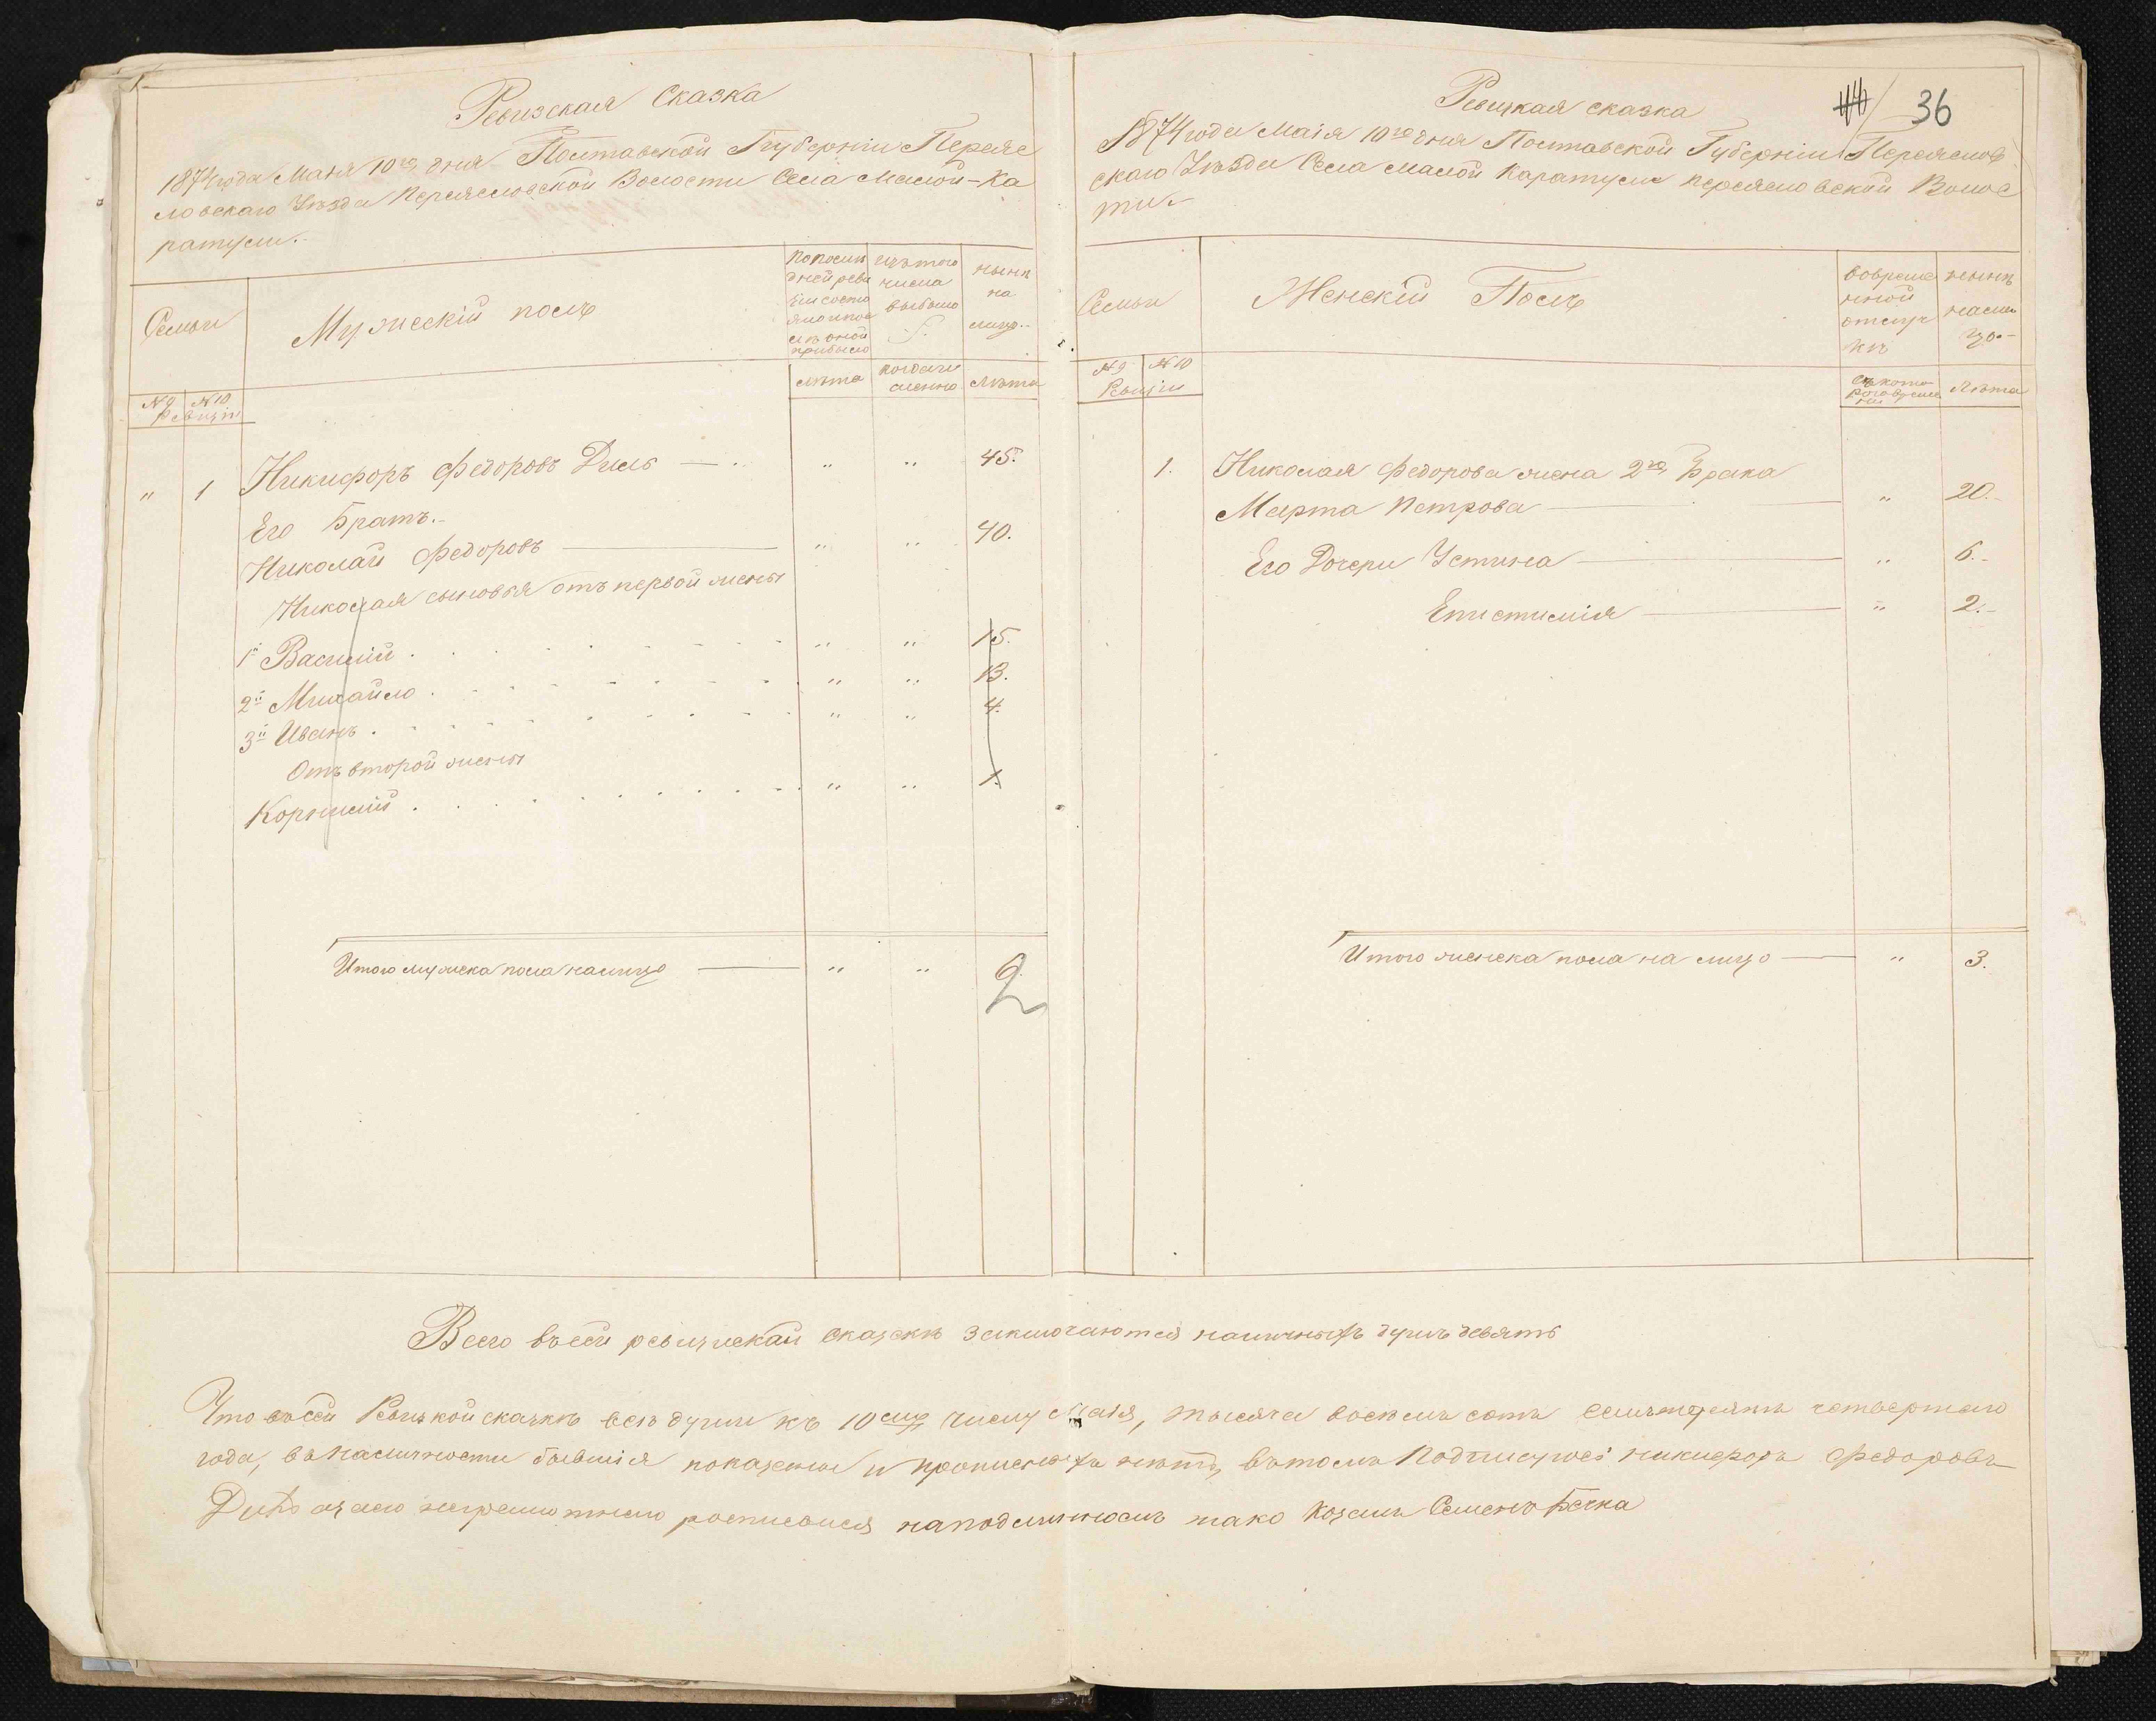 Ревизская Сказка
1874 года Мая 10го дня Полтавской Губерніи Переяс
ловскаго Уезда Переясловской Волости Села Малой-Ка
ратули.
Семьи
Мужескій полъ
По послѣ
дней реви
зіи состо
яло и пос
лѣ оной
прибыло
изъ того
числа
выбыло
нынѣ
на
лицо.
№ 9 № 10
Ревизіи
лѣта
когда и
менно
лѣта
" 1 Никифоръ Федоровъ Диль " " 45.
Его Братъ.
Николай Федоровъ " " 40.
Николая сыновья отъ первой жены
1й Василій " " 15.
2й Михайло " " 13.
3й Иванъ " " 4.
Отъ второй жены
Корнилій " " 1.
Итого мужеска пола налицо " " 2
36
Ревизкая сказка
1874 года Маія 10го дня Полтавской Губерніи Переяслов
скаго Уѣзда Села Малой Каратули Переясловской Волос
ти.
Семьи
Женскій Полъ
вовреме
нной
отлуч
кѣ
нынѣ
нали
цо.
№ 9 № 10
Ревизіи
съ кото
раго време
ни
Лѣта
1. Николая Федорова жена 2го Брака
Марта Петрова " 20.
Его Дочери Устина " 6.
Епистимія " 2.
Итого женска пола на лицо " 3.
Всего въ сей ревизской сказкѣ заключаются наличныхъ душъ девять
Что въ сей Ревизкой сказкѣ всѣ души къ 10му числу Маія, тысяча восемь сотъ семьдесять четвертаго
года, въ наличности бывшія показаны и прописныхъ нѣтъ, въ томъ Подписуюсі Никифоръ Федоровъ
Диль а за его неграмотнаго росписался на подлинномъ тако Козакъ Семенъ Бечка